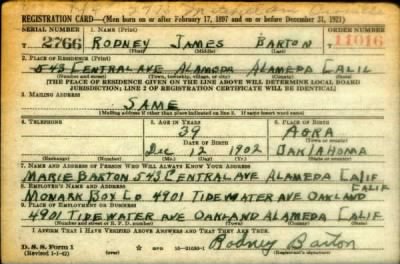 REGISTRATION CARD—(Men born on or after February 17, 1897 and on or before December 31, 1921)
SERIAL NUMBER 1. NAME (Print) ORDER NUMBER
T 2766 RODNEY JAMES BARTON 11016
(First) (Middle) (Last)
2. PLACE OF RESIDENCE (Print)
543 CENTRAL AVE ALAMEDA ALAMEDA CALIF
(Number and street) (Town, township, village, or city) (County) (State)
[THE PLACE OF RESIDENCE GIVEN ON THE LINE ABOVE WILL DETERMINE LOCAL BOARD
JURISDICTION; LINE 2 OF REGISTRATION CERTIFICATE WILL BE IDENTICAL]
3. MAILING ADDRESS
SAME
[Mailing address if other than place indicated on line 2. If same insert word same]
4. TELEPHONE 5. AGE IN YEARS 6. PLACE OF BIRTH
39 AGRA
DATE OF BIRTH (Town or county)
DEC 12 1902 OAKLAHOMA
(Exchange) (Number) (Mo.) (Day) (Yr.) (State or country)
7. NAME AND ADDRESS OF PERSON WHO WILL ALWAYS KNOW YOUR ADDRESS
MARIE BARTON 543 CENTRAL AVE ALAMEDA CALIF
8. EMPLOYER'S NAME AND ADDRESS
CALIF
MONARK BOX CO 4901 TIDEWATER AVE OAKLAND
9. PLACE OF EMPLOYMENT OR BUSINESS
4901 TIDEWATER AVE OAKLAND ALAMEDA CALIF
(Number and street or R. F. D. number) (Town) (County) (State)
I AFFIRM THAT I HAVE VERIFIED ABOVE ANSWERS AND THAT THEY ARE TRUE.
D. S. S. Form 1
(Revised 1-1-42) (over)
Rodney Barton
(Registrant's signature)